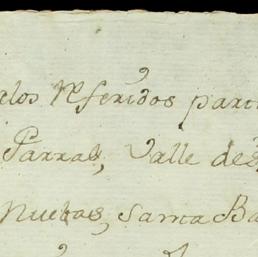 los Referidos parti
Parral, Valle de S
Nuebas, Santa Ba